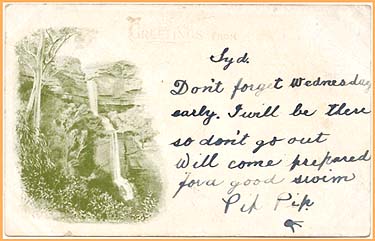 GREETINGS FROM
Syd.
Don't forget Wednesday
early. I will be there
so don't go out
Will come prepared
for a good swim
Pip Pip.